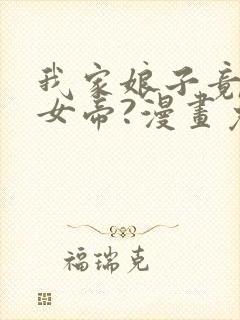 我家娘子竟
女帝?漫畫
福瑞克